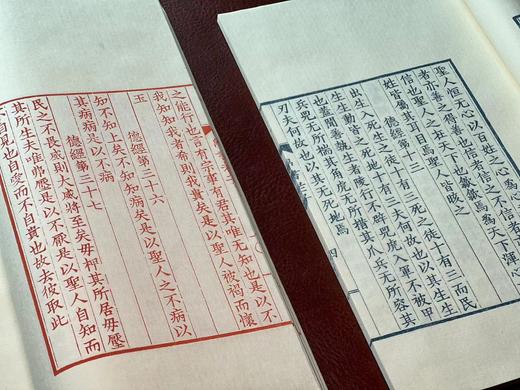 聖人恒无心以百姓之心爲心
者亦善之得善也信者信之不信
信也聖人之在天下也歙歙焉爲天下渾心
姓皆屬其耳目焉聖人皆咳之
德經第十三
出生入死生之徒十有三死之徒十有三而民
生生動皆之死地十有三夫何故也以其生生
也蓋聞善執生者陵行不辟兕虎入軍不被甲
兵兕无所揣其角虎无所措其爪兵无所容其
刃夫何故也以其无死地焉
四
之能行也言有宗事有君其唯无知也是以不
我知知我者希則我貴矣是以聖人被褐而懷
玉
德經第三十六
知不知上矣不知知病矣是以聖人之不病以
其病病是以不病
德經第三十七
民之不畏威則大威將至矣毋柙其所居毋壓
其所生夫唯弗壓是以不厭是以聖人自知而
不自見也自愛而不自貴也故去彼取此